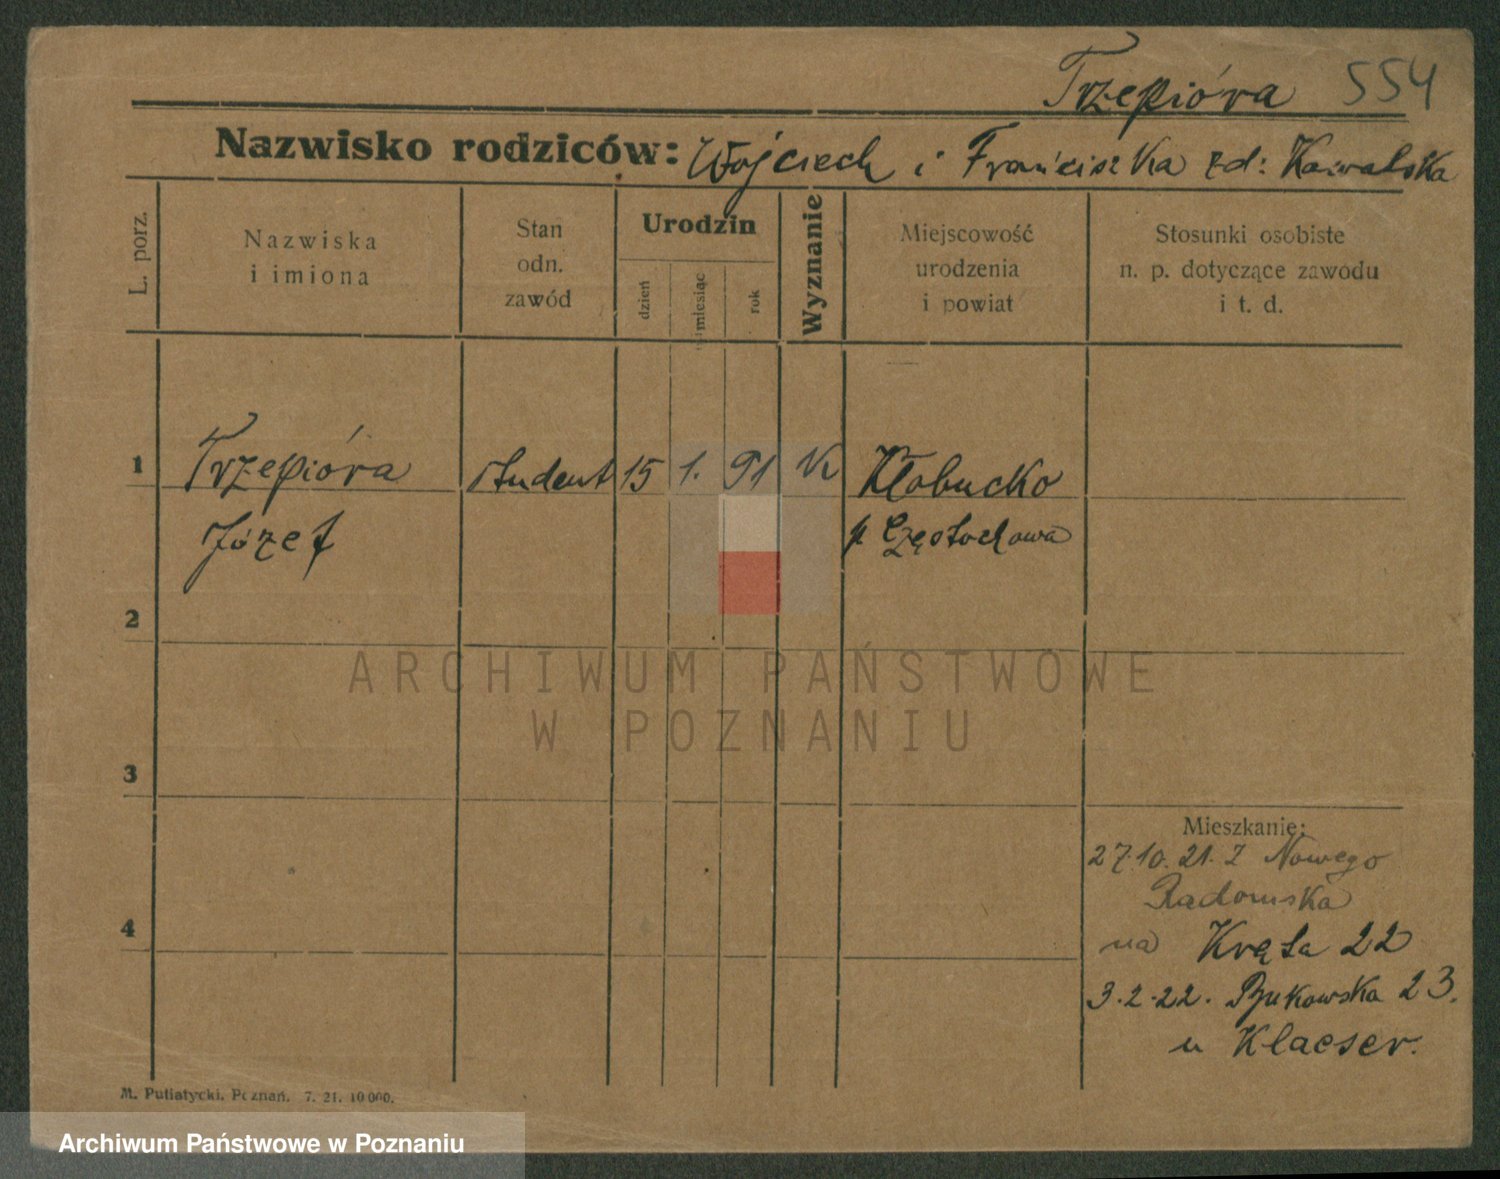 Trzepióra 554
Nazwisko rodziców: Wojciech i Franciszka zd: Kawalska
L. porz.
Nazwiska
i imiona
Stan
odn.
zawód
Urodzin
dzień
miesiąc
rok
Wyznanie
Miejscowość
urodzenia
i powiat
Stosunki osobiste
n. p. dotyczące zawodu
i t. d.
1 Trzepióra student 15 1. 91 K Kłobucko
Józef p Częstochowa
2
ARCHIWUM PAŃSTWOWE
W POZNANIU
3
Mieszkanie:
27.10.21. z Nowego
Radomska
4
na Kręta 22
3.2.22. Bukowska 23.
u Klaeser.
M. Putiatycki, Poznań. 7. 21. 10000.
Archiwum Państwowe w Poznaniu